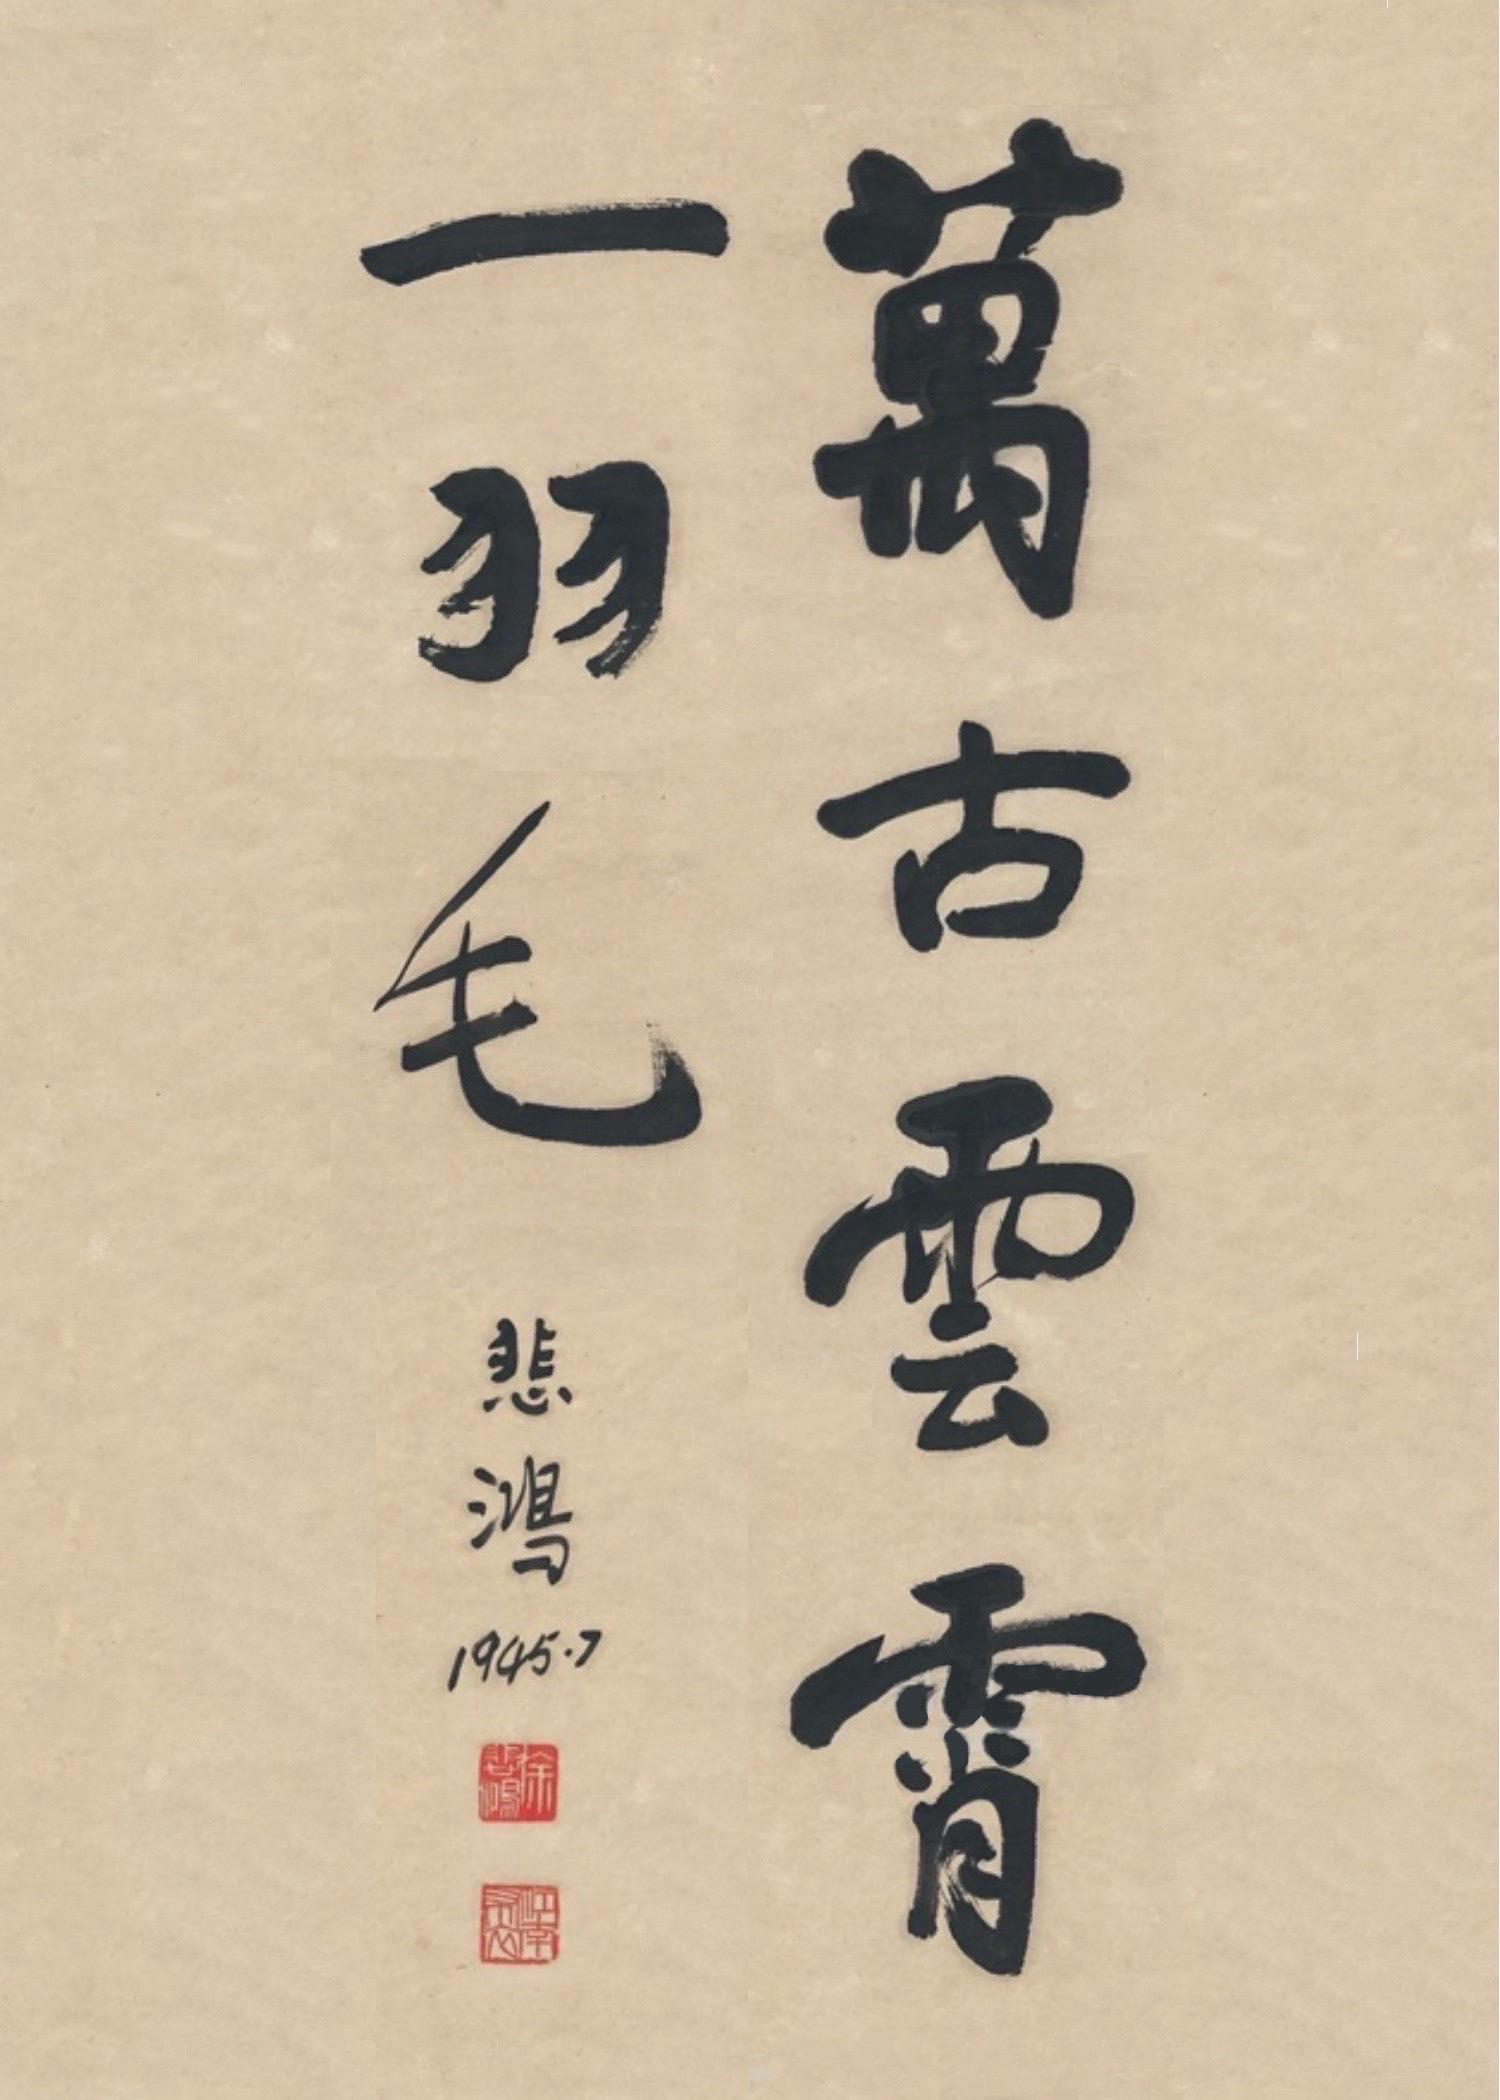 萬古雲霄
一羽毛
悲鴻
1945.7
徐悲鴻